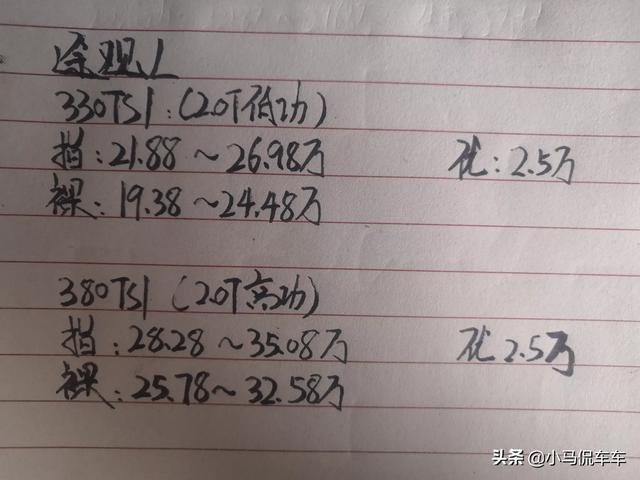 途观L
330TSI:(2.0T低功)
指:21.88~26.98万 优:2.5万
裸:19.38~24.48万
380TSI(2.0T高功)
指:28.28~35.08万 优2.5万
裸:25.78~32.58万
头条@小马侃车车